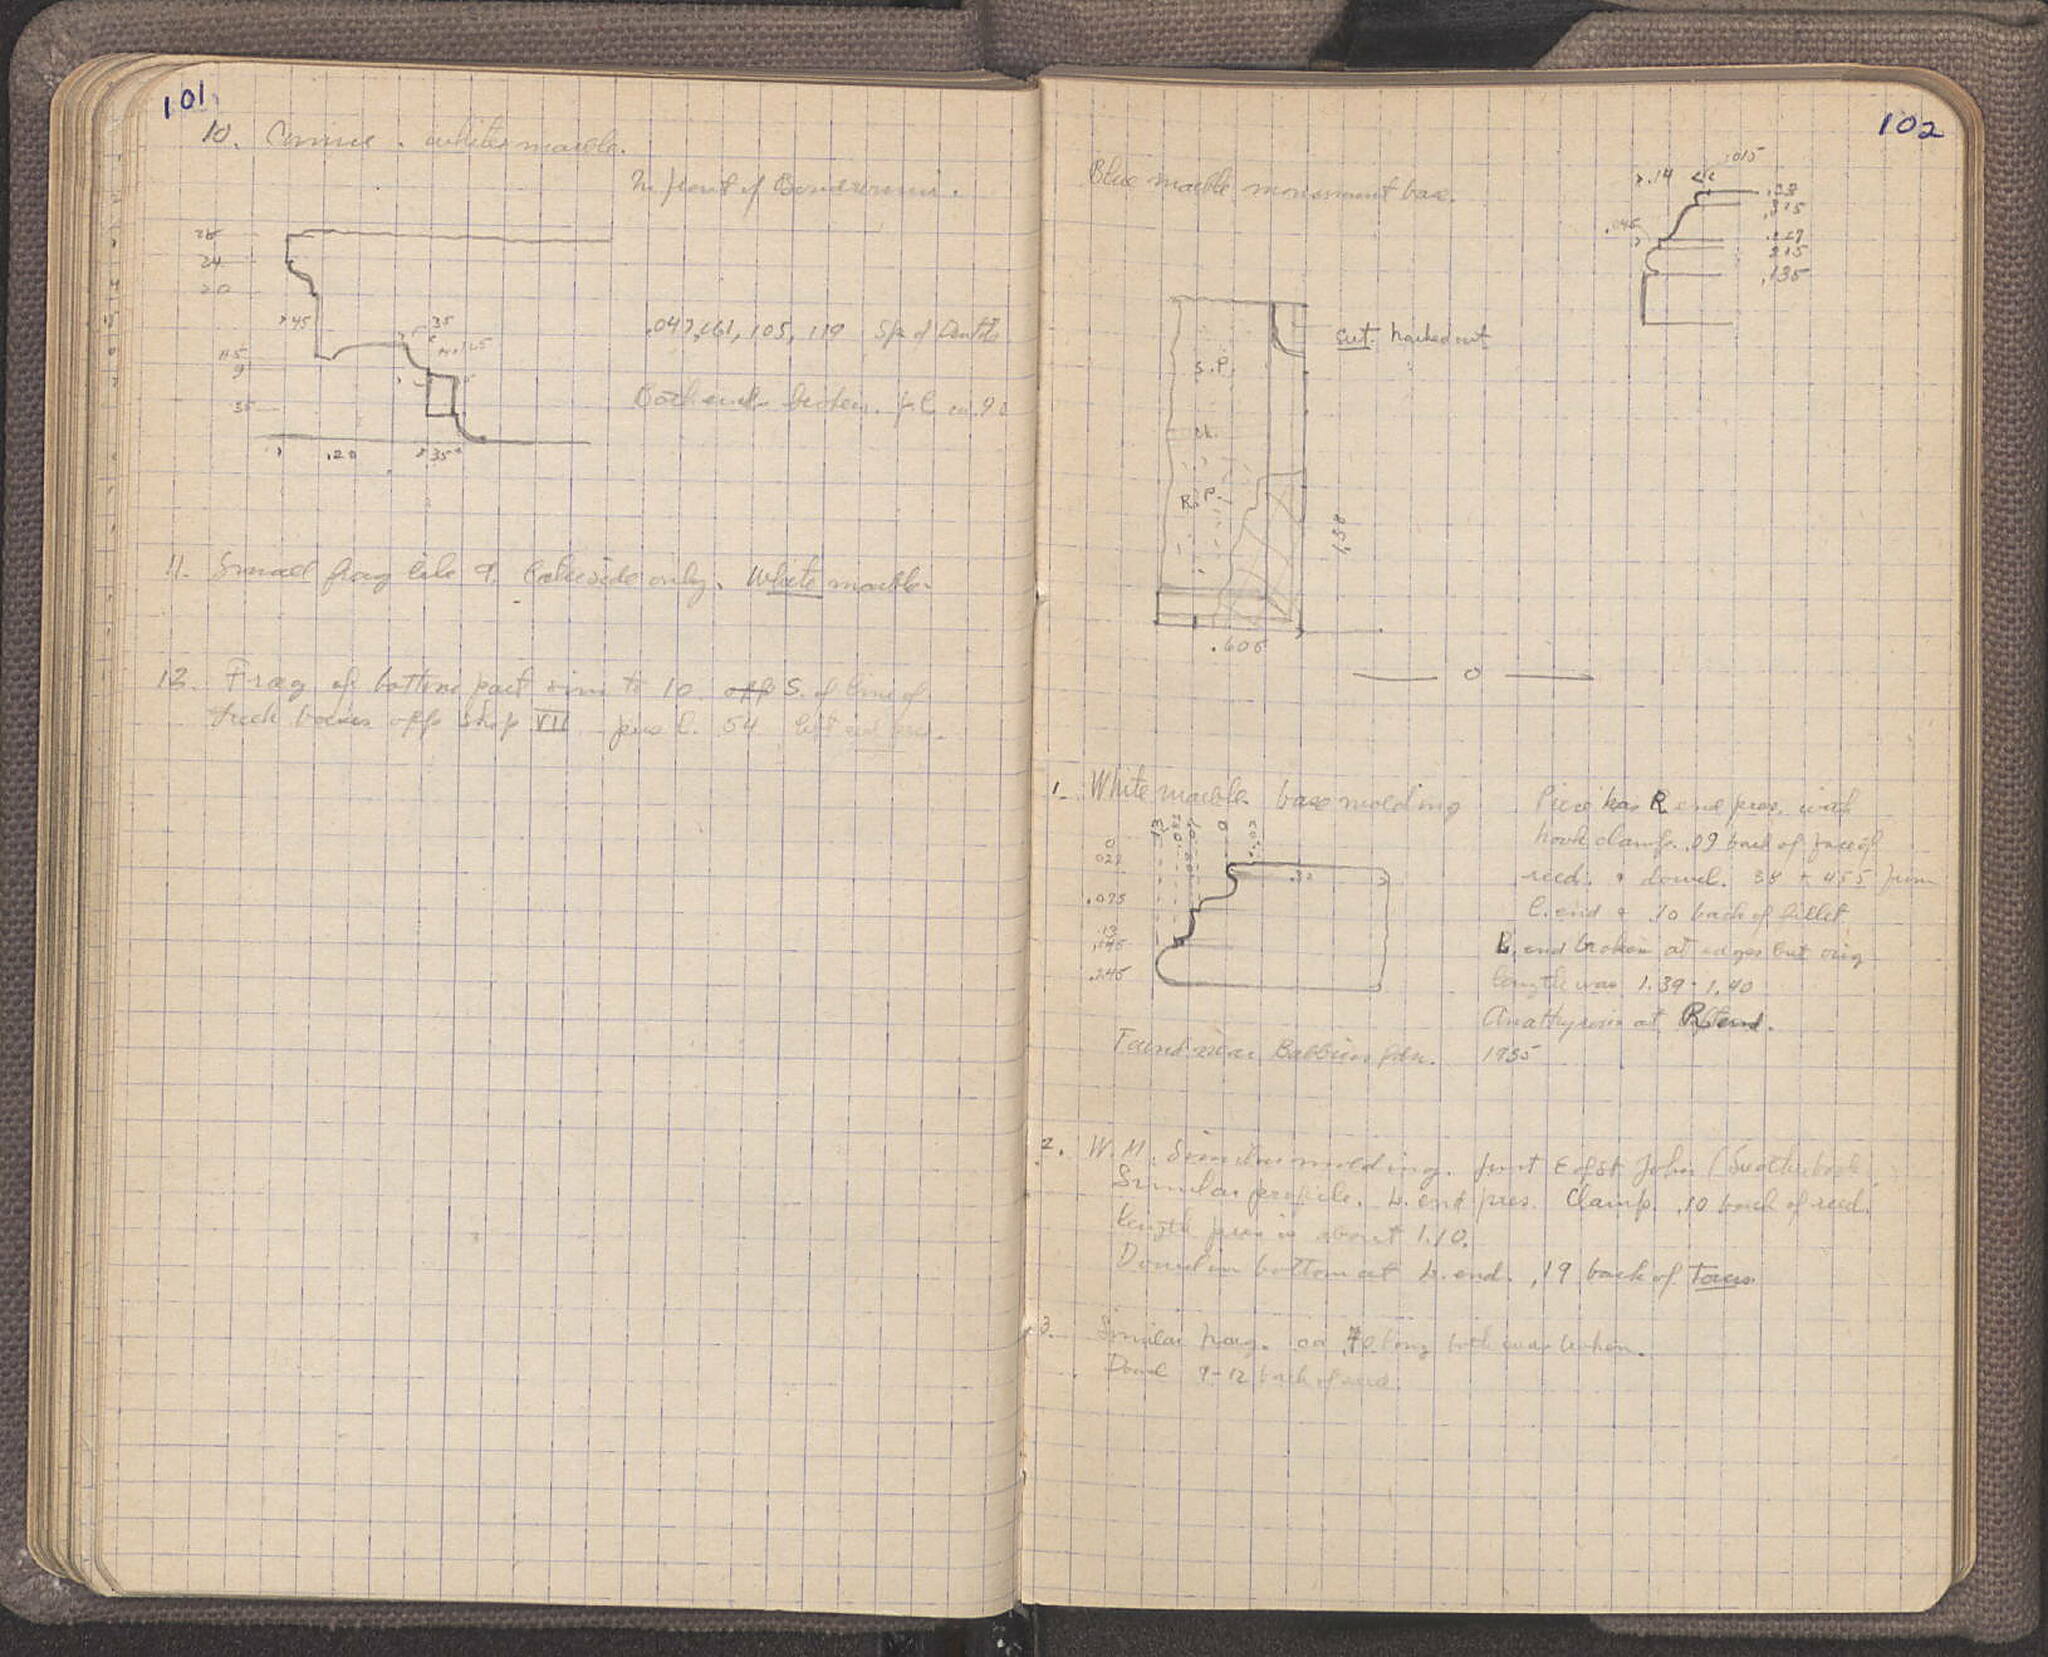 101
10. Cornice. white marble.
In front of
28
24
20
.45
35
11.5
9
35
.20
35
.047, .061, 105, 119 Sp. of Dentils
Both ends broken. p.l. ca. 90
11. Small frag like 9. Outside only. White marble.
12. Frag of bottom part sim to 10 opp S. of line of
opp shop VII pres l. .54 left end pres.
102
Blue marble monument base.
.015
.14
.33
.315
.045
.229
215
.135
cut. hacked out
S.P.
R.P.
1.58
.605
1. White marble. base molding
0
.13
0
.075
.13
.145
.245
.32
Piece has R end pres. with
hook clamp .09 back of face of
reed. & dowel. 38 + 455 from
l. end & .10 back of fillet
L. end broken at edges but orig
length was 1.39 - 1.40
Anathyrosis at R end.
Found near Babbius fdn. 1935
2. W.M. Similar molding. Just E of St John
Similar profile. L. end pres. Clamp .10 back of reed.
Length pres is about 1.10.
Dowel in bottom at L. end. .19 back of Torus
3. Similar frag. ca .70 long both ends broken.
Dowel 9-12 back of reed.